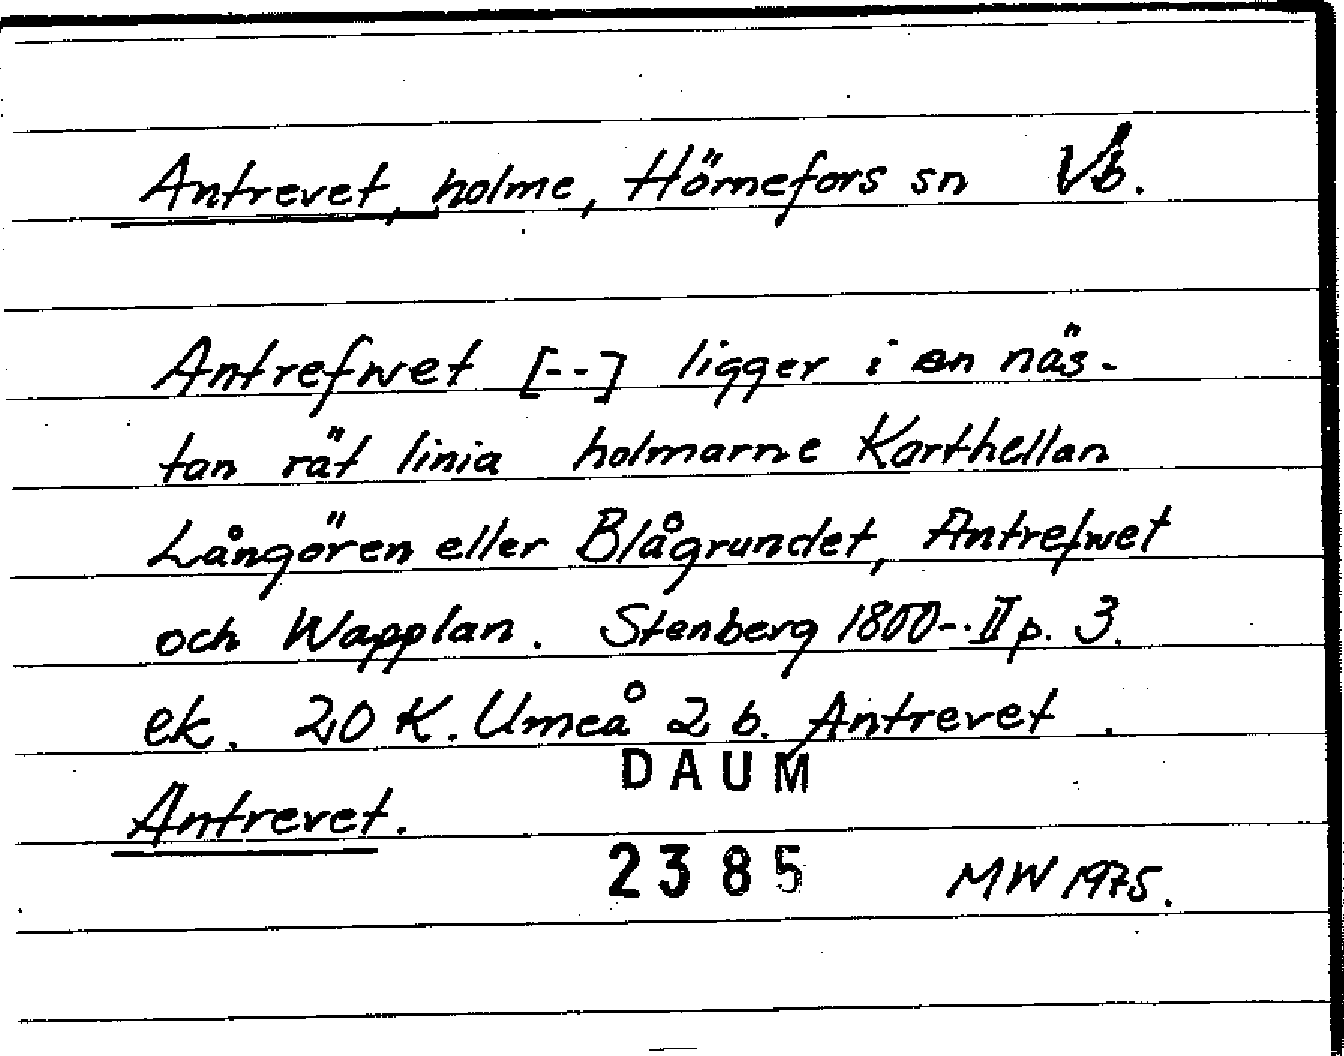 Antrevet, holme, Hörnefors sn Vb.
Antrefwet [--] ligger i en näs-
tan rät linia holmarne Korthellan
Långören eller Blågrundet, Antrefwet
och Wapplan. Stenberg 1800-.II p. 3.
ek. 20 K. Umeå 2 b. Antrevet.
DAUM
Antrevet.
2385 MW 1975.